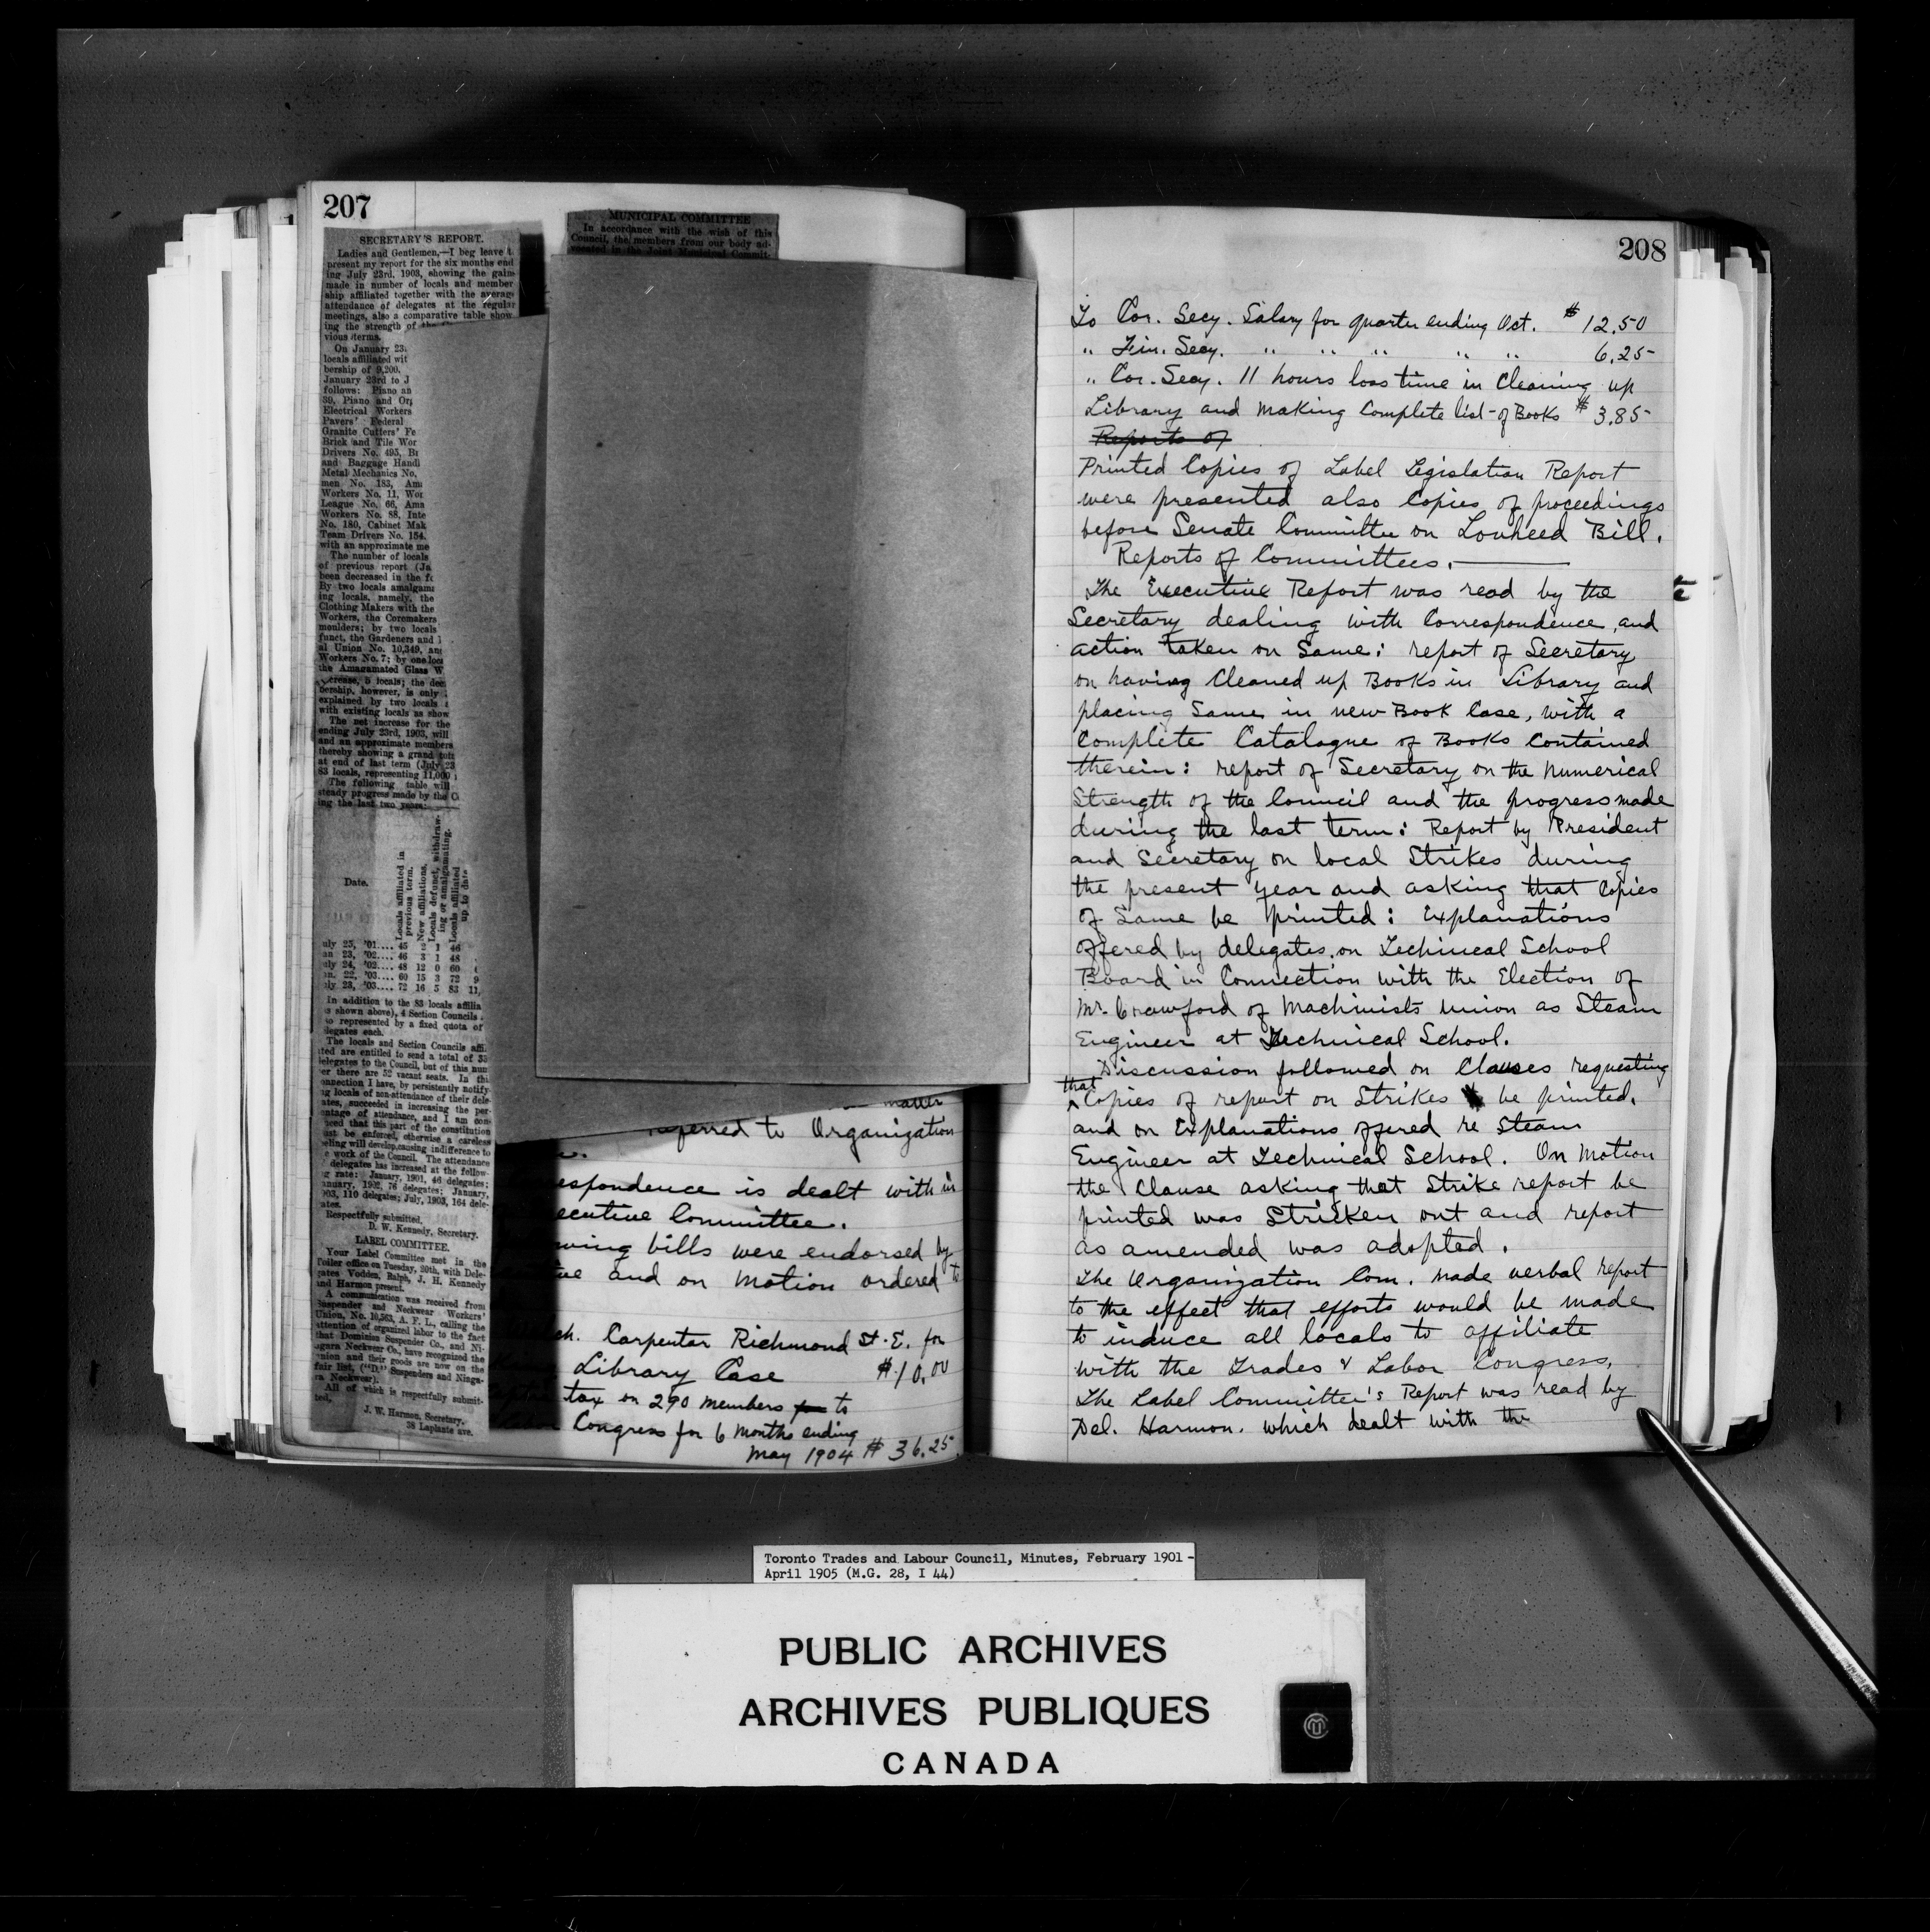 207
SECRETARY'S REPORT.
Ladies and Gentlemen,—I beg leave t
present my report for the six months end
ing July 23rd, 1903, showing the gain
made in number of locals and member
ship affiliated together with the average
attendance of delegates at the regular
meetings, also a comparative table show
ing the strength of the
vious terms.
On January 23
locals affiliated wit
bership of 9,200.
January 23rd to J
follows: Piano an
39, Piano and Or
Electrical Workers
Pavers' Federal
Granite Cutters' Fe
Brick and Tile Wor
Drivers No. 495, Br
and Baggage Handl
Metal Mechanics No.
men No. 183, Am
Workers No. 11, Wo
League No. 66, Ama
Workers No. 88, Inte
No. 180, Cabinet Mak
Team Drivers No. 154,
with an approximate me
The number of locals
of previous report (Ja
been decreased in the fo
By two locals amalgama
ing locals, namely, the
Clothing Makers with the
Workers, the Coremakers
moulders; by two locals
funct, the Gardeners and
al Union No. 10,349, an
Workers No. 7; by one loca
the Amagamated Glass W
crease, 5 locals; the dec
bership, however, is only
explained by two locals
with existing locals as show
The net increase for the
ending July 23rd, 1903, will
and an approximate members
thereby showing a grand tot
at end of last term (July 23
83 locals, representing 11,000
The following table will
steady progress made by the C
ing the last two years:
Date.
Locals affiliated in previous term.
New affiliations.
Locals defunct, withdraw-ing or amalgamating.
Locals affiliated up to date
uly 25, '01.... 45 2 1 46
an 23, '02.... 46 3 1 48
uly 24, '02.... 48 12 0 60
n. 22, '03.... 60 15 3 72 9
uly 23, '03.... 72 16 5 83 11,
In addition to the 83 locals affilia
s shown above), 4 Section Councils
so represented by a fixed quota of
legates each.
The locals and Section Councils affi
ted are entitled to send a total of 33
delegates to the Council, but of this num
er there are 52 vacant seats. In thi
nnection I have, by persistently notify
g locals of non-attendance of their dele
ates, succeeded in increasing the per-
entage of attendance, and I am con-
nced that this part of the constitution
ust be enforced, otherwise a careless
eling will develop, causing indifference to
e work of the Council. The attendance
delegates has increased at the follow-
g rate: January, 1901, 46 delegates;
anuary, 1902, 76 delegates; January,
903, 110 delegates; July, 1903, 164 dele-
ates.
Respectfully submitted,
D. W. Kennedy, Secretary.
LABEL COMMITTEE.
Your Label Committee met in the
Toiler office on Tuesday, 20th, with Dele-
gates Vodden, Ralph, J. H. Kennedy
and Harmon present.
A communication was received from
Suspender and Neckwear Workers'
Union, No. 10,563, A. F. L., calling the
attention of organized labor to the fact
that Dominion Suspender Co., and Ni-
agara Neckwear Co., have recognized the
union and their goods are now on the
fair list, ("D." Suspenders and Niaga-
ra Neckwear).
All of which is respectfully submit-
ted,
J. W. Harmon, Secretary,
38 Laplante ave.
MUNICIPAL COMMITTEE
In accordance with the wish of this
Council, the members from our body ad-
vocated in the Joint Municipal Commit-
matter
referred to Organization
espondence is dealt with in
ecutive Committee.
wing bills were endorsed by
ive and on motion ordered to
ch. Carpenter Richmond St. E. for
Library Case $10.00
tax on 290 members for to
Congress for 6 months ending
May 1904 $36.25
208
To Cor. Secy. Salary for quarter ending Oct. $12.50
" Fin. Secy. " " " " " 6.25
" Cor. Secy. 11 hours loss time in Cleaning up
Library and making Complete list of Books $3.85
Reports of
Printed Copies of Label Legislation Report
were presented also Copies of proceedings
before Senate Committee on Lonheed Bill.
Reports of Committees.
The Executive Report was read by the
Secretary dealing with Correspondence, and
action taken on Same: report of Secretary
on having Cleaned up Books in Library and
placing Same in new Book Case, with a
Complete Catalogue of Books Contained
therein: report of Secretary on the numerical
Strength of the Council and the progress made
during the last term: Report by President
and Secretary on local Strikes during
the present year and asking that Copies
of Same be printed: Explanations
offered by delegates on Technical School
Board in Connection with the Election of
Mr. Crawford of Machinists union as Steam
Engineer at Technical School.
Discussion followed on Clauses requesting
that Copies of report on Strikes be printed,
and on Explanations offered re Steam
Engineer at Technical School. On Motion
the Clause asking that Strike report be
printed was Stricken out and report
as amended was adopted.
The Organization Com. made verbal report
to the effect that efforts would be made
to induce all locals to affiliate
with the Trades & Labor Congress.
The Label Committee's Report was read by
Del. Harmon. which dealt with the
Toronto Trades and Labour Council, Minutes, February 1901 -
April 1905 (M.G. 28, I 44)
PUBLIC ARCHIVES
ARCHIVES PUBLIQUES
CANADA